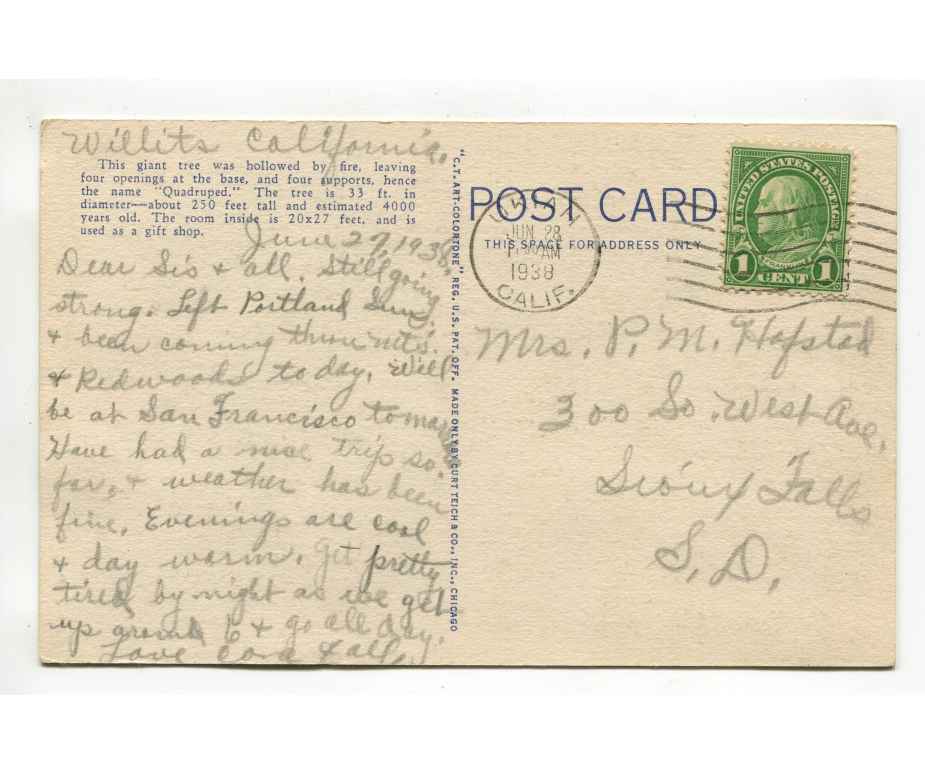 Willits California.
This giant tree was hollowed by fire, leaving
four openings at the base, and four supports, hence
the name "Quadruped." The tree is 33 ft. in
diameter—about 250 feet tall and estimated 4000
years old. The room inside is 20x27 feet, and is
used as a gift shop.
June 27, 1938.
Dear Sis & all. Still going
strong. Left Portland Sun.
& been coming thru mts.
& Redwoods today. Will
be at San Francisco tomorrow
Have had a nice trip so
far, & weather has been
fine. Evenings are cool
& day warm. Get pretty
tired by night as we get
up around 6 & go all day.
Love Cora & all.
"C.T. ART-COLORTONE" REG. U.S. PAT. OFF. MADE ONLY BY CURT TEICH & CO., INC., CHICAGO
POST CARD
THIS SPACE FOR ADDRESS ONLY
UKIAH
JUN 28
AM
1938
CALIF.
UNITED STATES POSTAGE
FRANKLIN
1 CENT 1
Mrs. P. M. Hofstad
300 So. West Ave.
Sioux Falls
S. D.